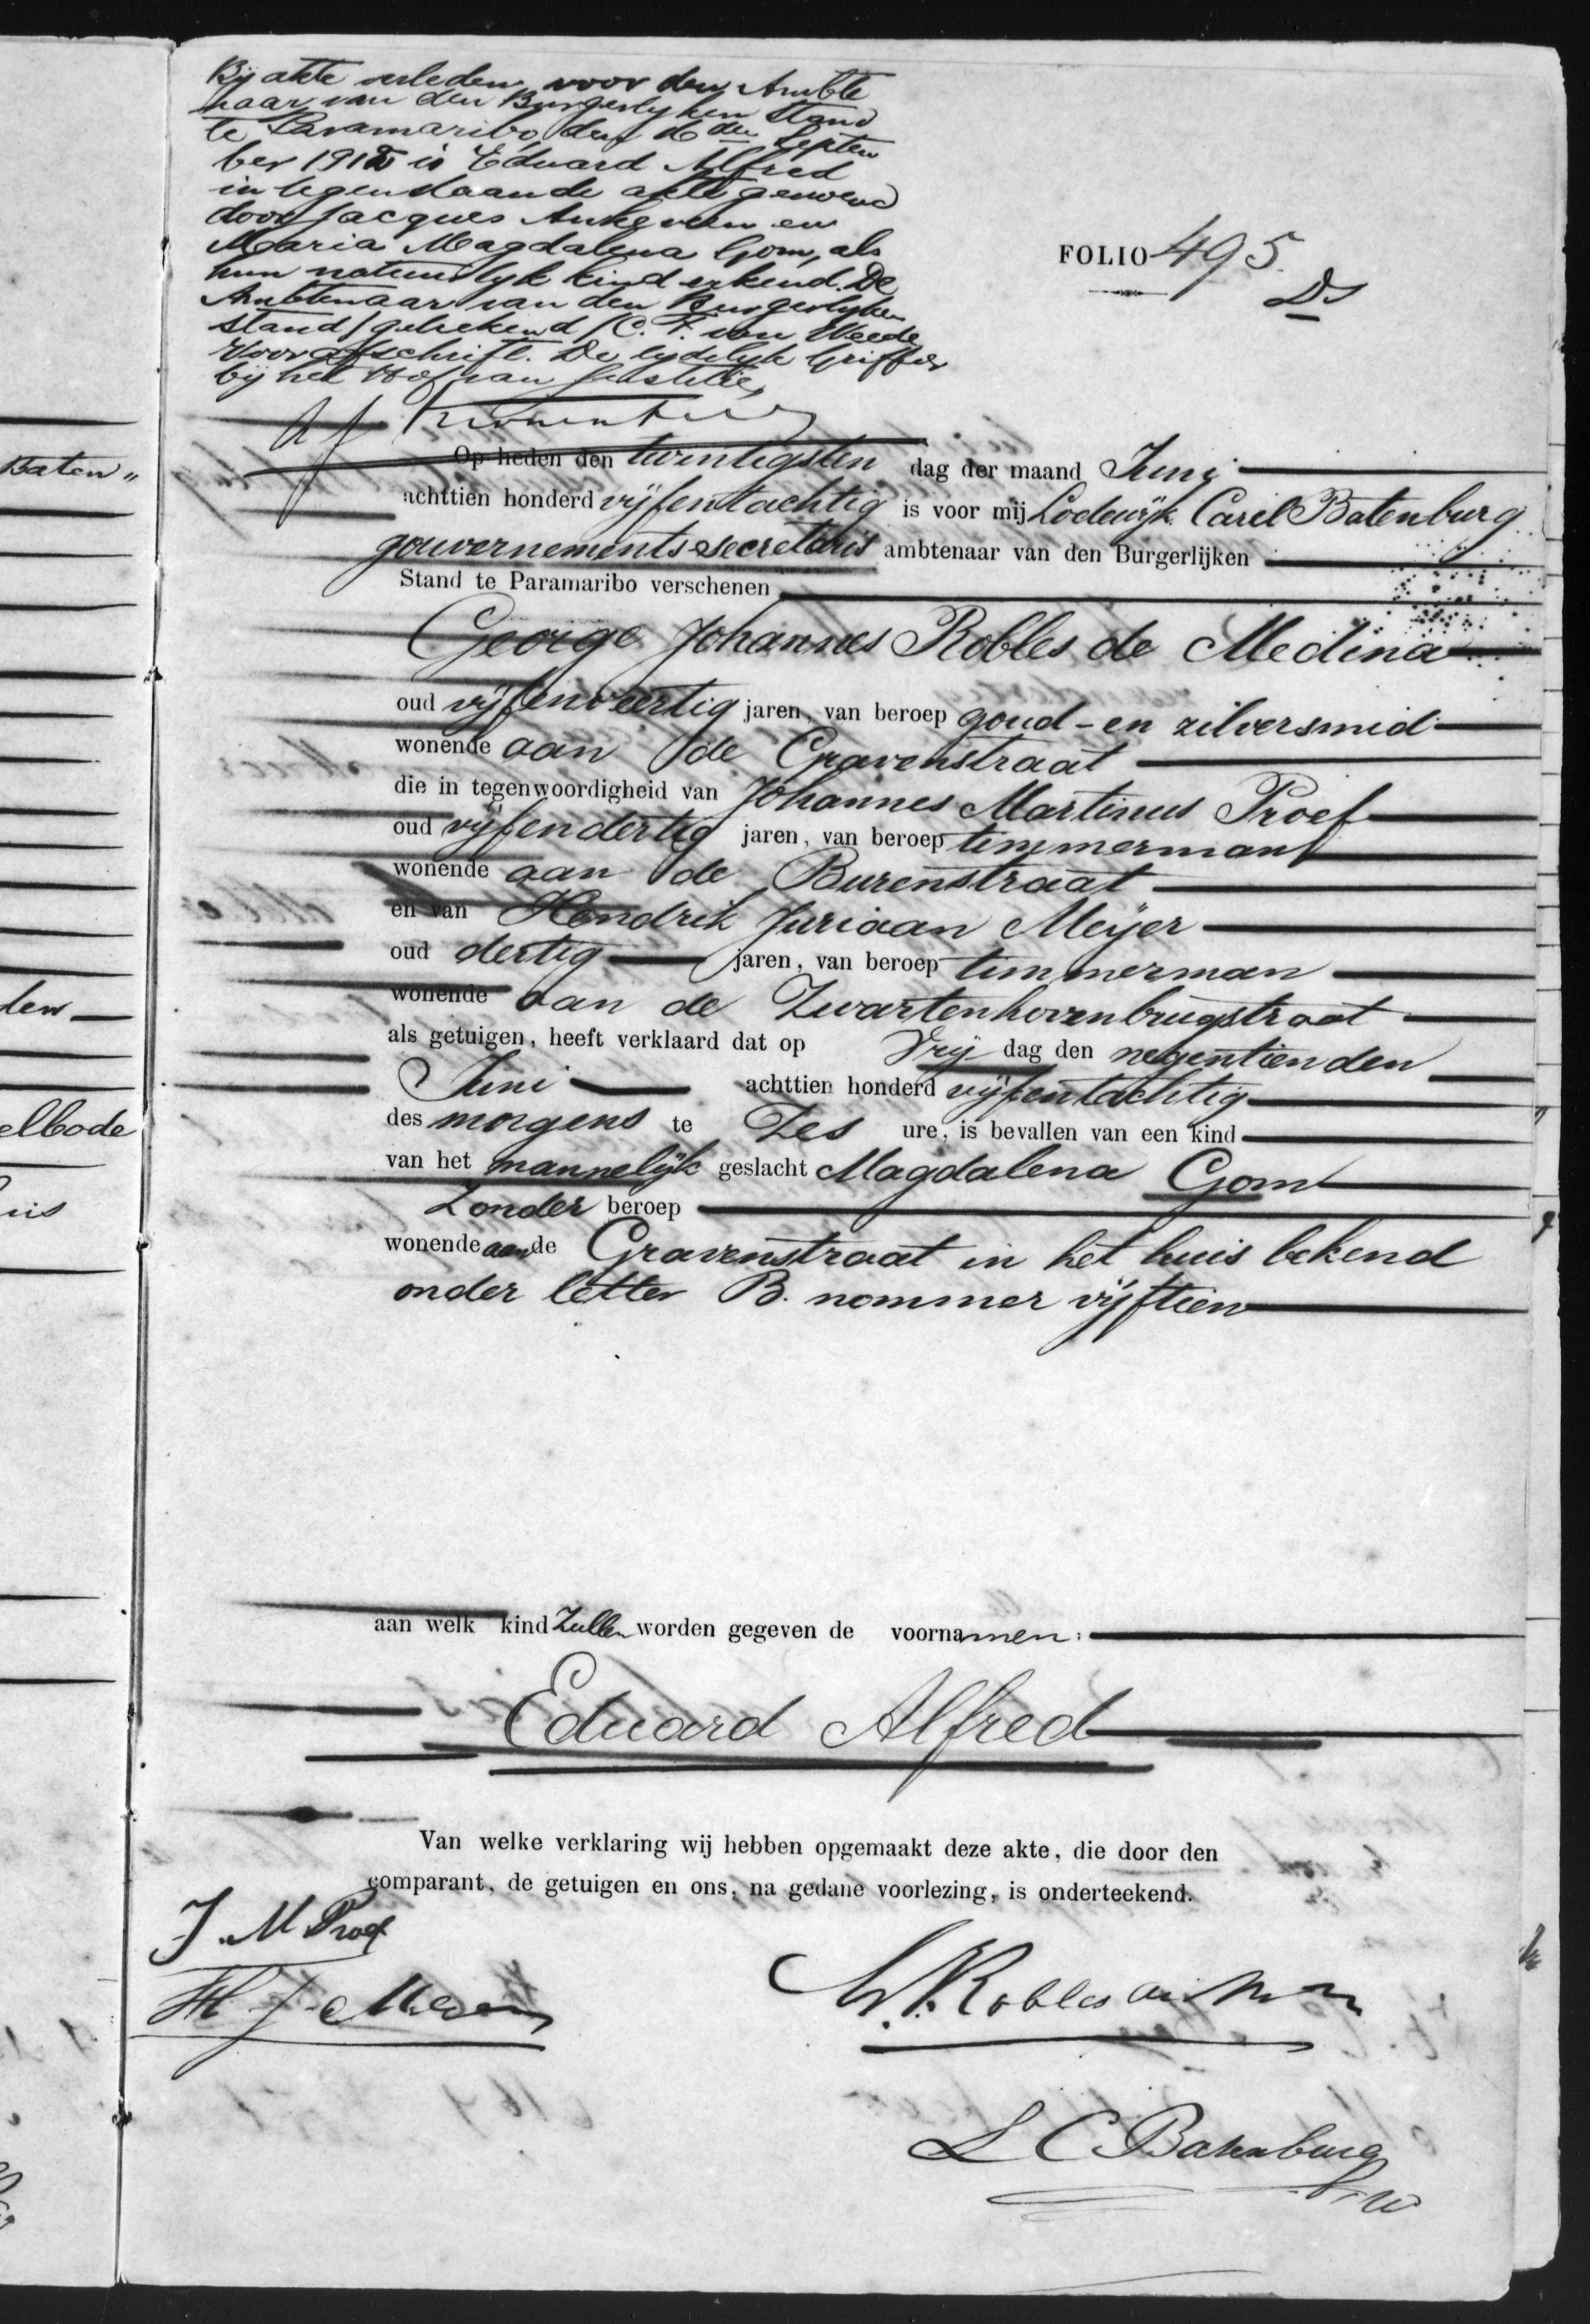 Bij akte verleden voor den Ambte
naar van den Burgerlyken Stand
te Paramaribo, den 16den Septem
ber 1912 is Eduard Alfred
in tegenstaande akte genoemd
door Jacques Ankeveen en
Maria Magdalena Gom, als
hun natuurlyk kind erkend. De
Ambtenaar van den Burgerlyken
Stand /geteekend/ C. F. van Weede
Voor afschrift. De tijdelyk Griffier
bij het Hof van Justitie,
FOLIO 495.
Baten"
Op heden den twintigsten dag der maand Junij
achttien honderd vijfentachtig is voor mij Lodewijk Carel Batenburg
gouvernements-secretaris ambtenaar van den Burgerlijken
Stand te Paramaribo verschenen
George Johannes Robles de Medina
oud vijfenveertig jaren, van beroep goud-en zilversmid
wonende aan de Gravenstraat
die in tegenwoordigheid van Johannes Martinus Proef
oud vijfendertig jaren, van beroep timmerman
wonende aan de Burenstraat
en van Hendrik Juriaan Meijer
oud dertig jaren, van beroep timmerman
wonende aan de Zwartenhovenbrugstraat
als getuigen, heeft verklaard dat op Vrij dag den negentienden
Juni achttien honderd vijfentachtig
des morgens te Zes ure, is bevallen van een kind
van het mannelijk geslacht Magdalena Gom
Zonder beroep
wonende aan de Gravenstraat in het huis bekend
onder letter B. nommer vijftien
elbode
aan welk kind Zullen worden gegeven de voornamen:
Eduard Alfred
Van welke verklaring wij hebben opgemaakt deze akte, die door den
comparant, de getuigen en ons, na gedane voorlezing, is onderteekend.
J. M Proef
H J Meijer
Robles de M
L C Batenburg